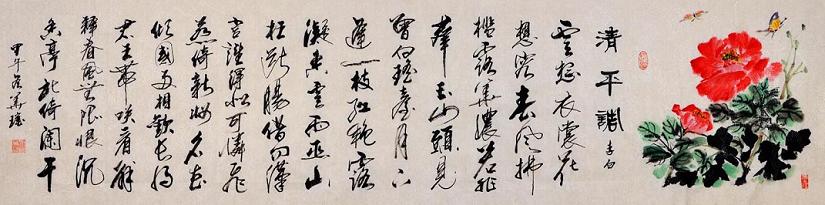 清平調
李白
雲想衣裳花
想容春風拂
檻露華濃若非
群玉山頭見
會向瑤臺月下
逢一枝紅艷露
凝香雲雨巫山
枉斷腸借问漢
宮誰得似可憐飛
燕倚新妝名花
傾國兩相歡長得
君王帶笑看解
釋春風無限恨沉
香亭北倚闌干
甲午